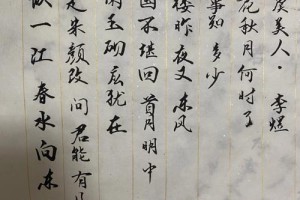 虞美人·李煜
花秋月何时了
事知多少
楼昨夜又东风
国不堪回首月明中
阑玉砌应犹在
是朱颜改问君能有
似一江春水向东